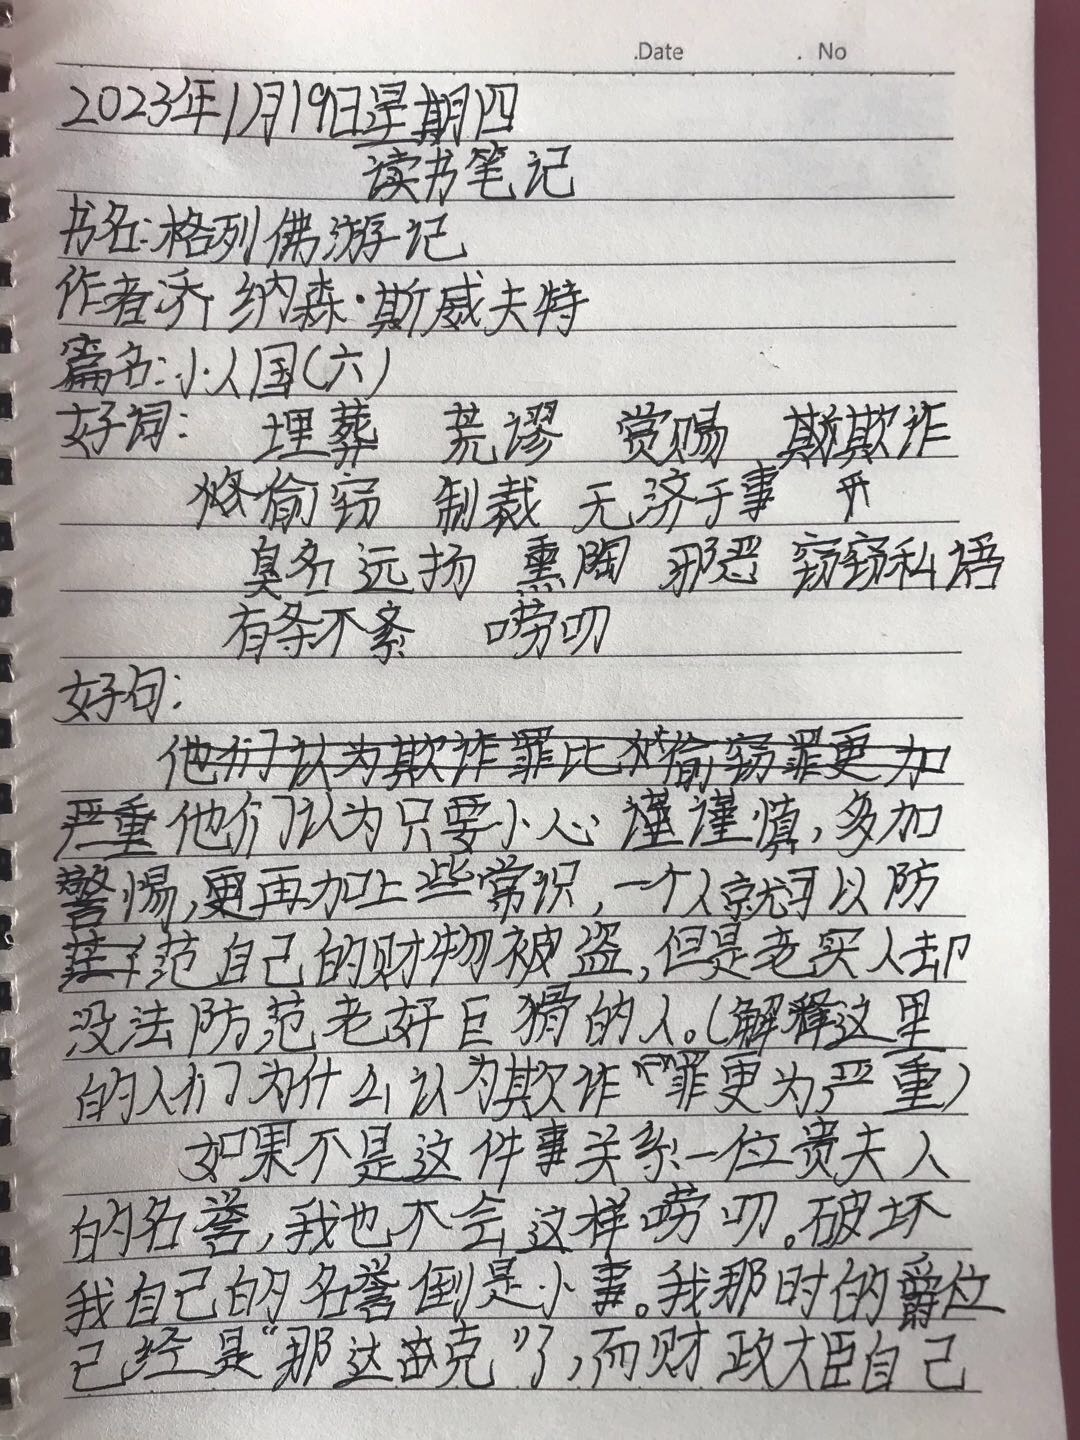 .Date . No
2023年1月19日星期四
读书笔记
书名:格列佛游记
作者:乔纳森·斯威夫特
篇名:小人国(六)
好词: 埋葬 荒谬 赏赐 欺诈
偷窃 制裁 无济于事
臭名远扬 熏陶 邪恶 窃窃私语
有条不紊 唠叨
好句:
他们认为欺诈罪比偷窃罪更加
严重他们认为只要小心谨谨慎,多加
警惕,更再加上些常识,一个人就可以防
范自己的财物被盗,但是老实人却
没法防范老奸巨猾的人。(解释这里
的人们为什么认为欺诈罪更为严重)
如果不是这件事关系一位贵夫人
的名誉,我也不会这样唠叨。破坏
我自己的名誉倒是小事。我那时的爵位
已经是“那达克”了,而财政大臣自己